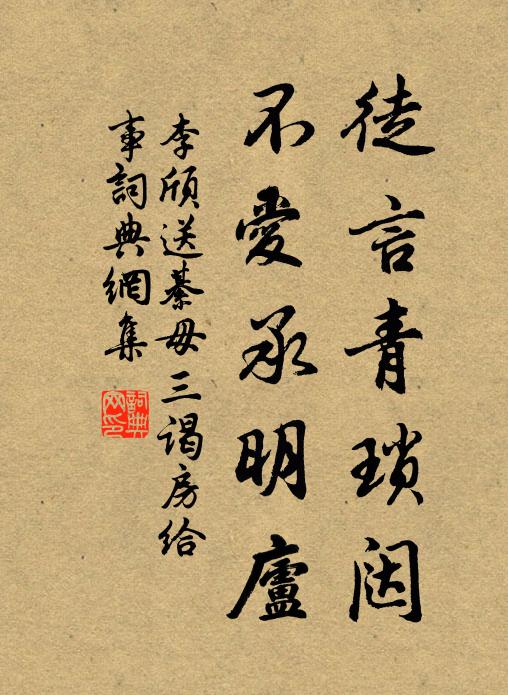 徒言青瑣闥
不愛承明廬
李頎送綦毋三謁房給
事詞典網集
詞典
网印